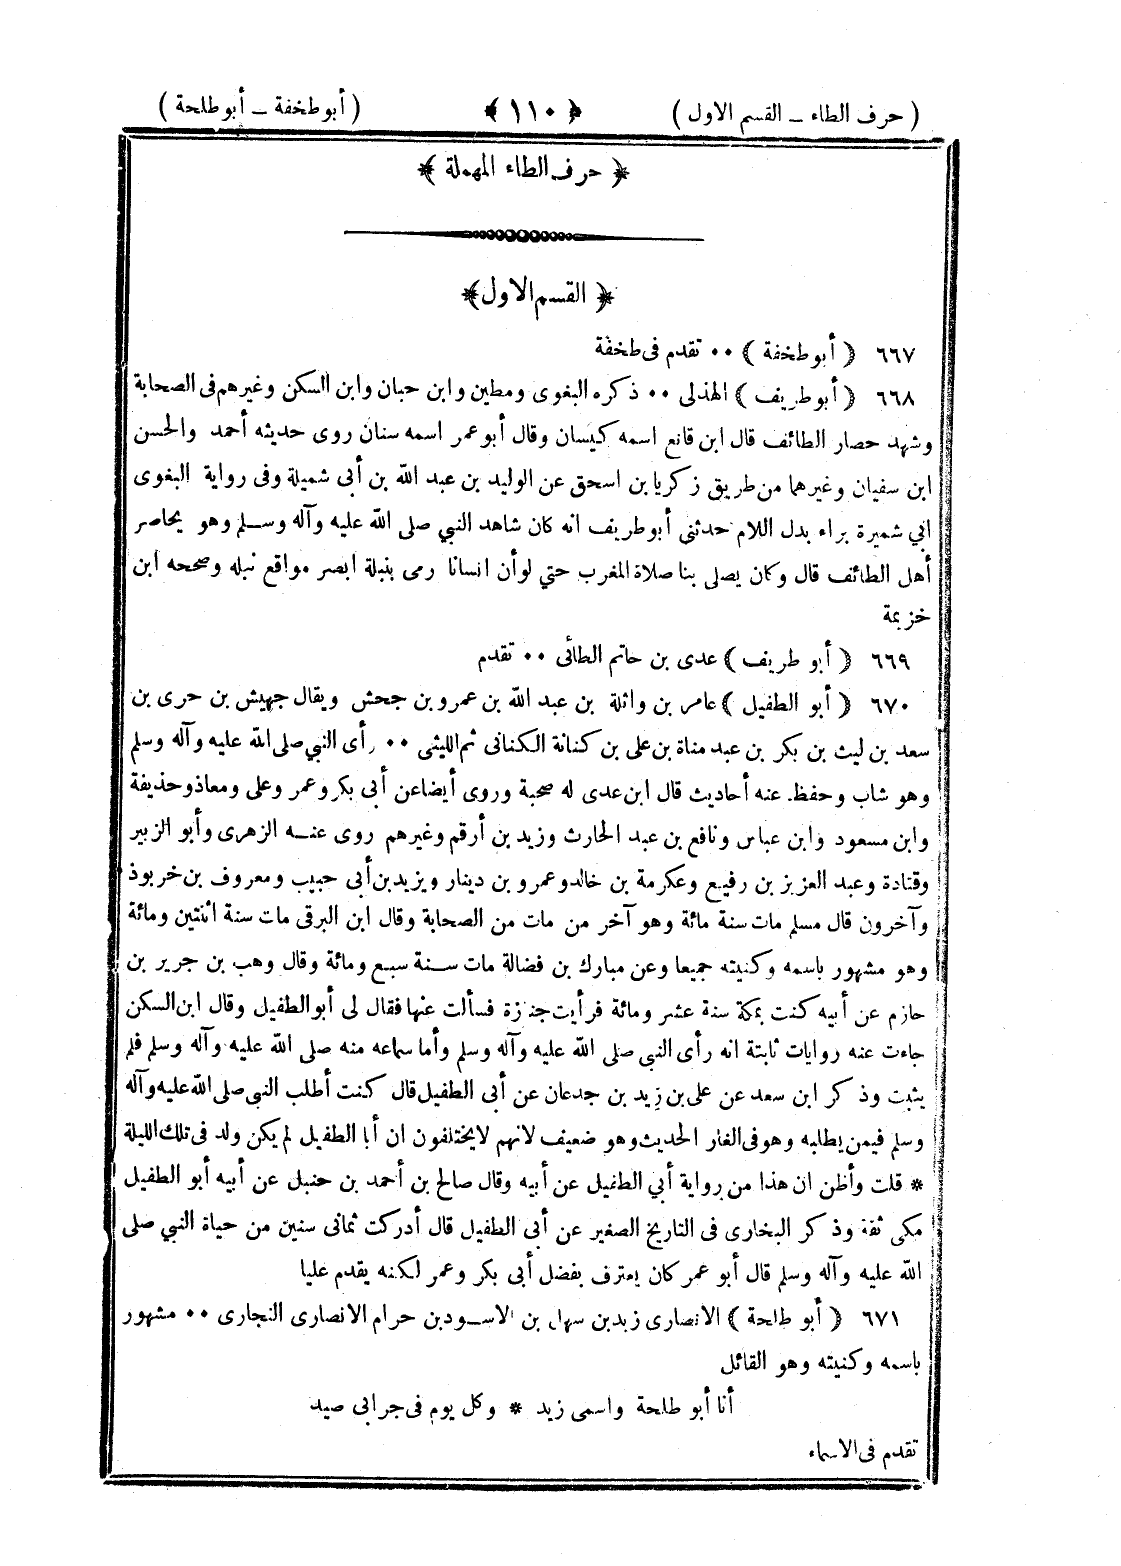 ( حرف الطاء ــ القسم الاول ) ﴿ ١١٠ ﴾ ( أبو طخفة ــ أبو طلحة )
﴿ حرف الطاء المهملة ﴾
﴿ القسم الاول ﴾
٦٦٧ ﴿ أبو طخفة ﴾ ٠٠ تقدم فى طخفة
٦٦٨ ﴿ أبو طريف ﴾ الهذلى ٠٠ ذكره البغوى ومطين وابن حبان وابن السكن وغيرهم فى الصحابة
وشهد حصار الطائف قال ابن قانع اسمه كيسان وقال أبو عمر اسمه سنان روى حديثه أحمد والحسن
ابن سفيان وغيرهما من طريق زكريا بن اسحق عن الوليد بن عبد الله بن أبى شميلة وفى رواية البغوى
ابي شميرة براء بدل اللام حدثنى أبو طريف انه كان شاهد النبي صلى الله عليه وآله وسلم وهو يحاصر
أهل الطائف قال وكان يصلى بنا صلاة المغرب حتي لو أن انسانا رمى بنبلة ابصر مواقع نبله وصححه ابن
خزيمة
٦٦٩ ﴿ أبو طريف ﴾ عدى بن حاتم الطائى ٠٠ تقدم
٦٧٠ ﴿ أبو الطفيل ﴾ عامر بن واثلة بن عبد الله بن عمرو بن جحش ويقال جهيش بن حرى بن
سعد بن ليث بن بكر بن عبد مناة بن على بن كنانة الكنانى ثم الليثى ٠٠ رأى النبي صلى الله عليه وآله وسلم
وهو شاب وحفظ عنه أحاديث قال ابن عدى له صحبة وروى أيضا عن أبى بكر وعمر وعلى ومعاذ وحذيفة
وابن مسعود وابن عباس ونافع بن عبد الحارث وزيد بن أرقم وغيرهم روى عنه الزهرى وأبو الزبير
وقتادة وعبد العزيز بن رفيع وعكرمة بن خالد وعمرو بن دينار ويزيد بن أبى حبيب ومعروف بن خربوذ
وآخرون قال مسلم مات سنة مائة وهو آخر من مات من الصحابة وقال ابن البرقى مات سنة اثنتين ومائة
وهو مشهور باسمه وكنيته جميعا وعن مبارك بن فضالة مات سنة سبع ومائة وقال وهب بن جرير بن
حازم عن أبيه كنت بمكة سنة عشر ومائة فرأيت جنازة فسألت عنها فقال لى أبو الطفيل وقال ابن السكن
جاءت عنه روايات ثابتة انه رأى النبي صلى الله عليه وآله وسلم وأما سماعه منه صلى الله عليه وآله وسلم فلم
يثبت وذكر ابن سعد عن على بن زيد بن جدعان عن أبى الطفيل قال كنت أطلب النبى صلى الله عليه وآله
وسلم فيمن يطلبه وهو فى الغار الحديث وهو ضعيف لانهم لا يختلفون ان أبا الطفيل لم يكن ولد فى تلك الليلة
* قلت وأظن ان هذا من رواية أبي الطفيل عن أبيه وقال صالح بن أحمد بن حنبل عن أبيه أبو الطفيل
مكى ثقة وذكر البخارى فى التاريخ الصغير عن أبى الطفيل قال أدركت ثمانى سنين من حياة النبي صلى
الله عليه وآله وسلم قال أبو عمر كان يعترف بفضل أبى بكر وعمر لكنه يقدم عليا
٦٧١ ﴿ أبو طلحة ﴾ الانصارى زيد بن سهل بن الاسود بن حرام الانصارى النجارى ٠٠ مشهور
باسمه وكنيته وهو القائل
أنا أبو طلحة واسمى زيد * وكل يوم فى جرابى صيد
تقدم فى الاسماء